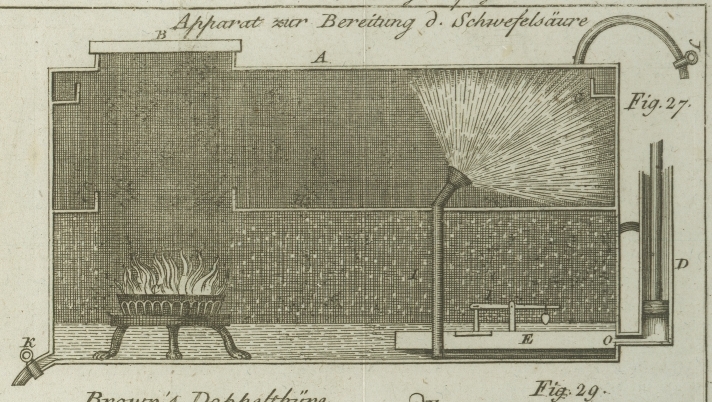 Apparat zur Bereitung d. Schwefelsäure
B
A
J
G
Fig. 27.
D
I
E
O
K
Fig. 29.
Brown's Doppelthüre